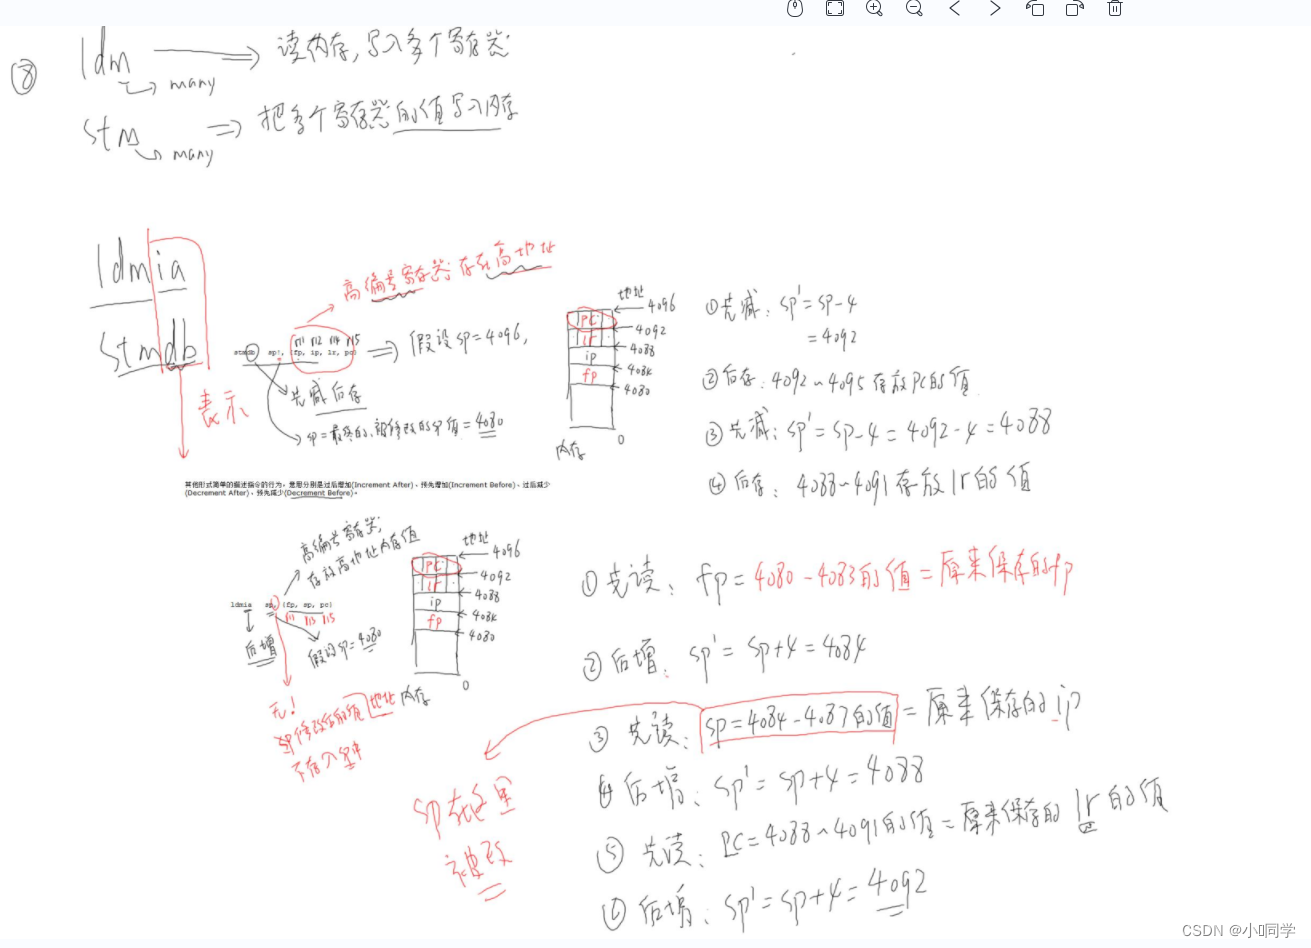 ⑧ ldm ⟹ 读内存,写入多个寄存器
many
stm ⟹ 把多个寄存器的值写入内存
many
ldmia
stmdb
表示
高编号寄存器:存在高地址
r11 r12 r14 r15
stmdb sp!, {fp, ip, lr, pc} ⟹ 假设sp=4096,
先减后存
sp=最终的,被修改的sp值=4080
地址
4096
pc
4092
lr
4088
ip
4084
fp
4080
0
内存
①先减: sp'=sp-4
=4092
②后存: 4092~4095存放pc的值
③先减: sp'=sp-4=4092-4=4088
④后存: 4088~4091存放lr的值
其他形式简单的描述指令的行为,意思分别是过后增加(Increment After)、预先增加(Increment Before)、过后减少
(Decrement After)、预先减少(Decrement Before)。
高编号寄存器,
存放高地址内存值
ldmia sp, {fp, sp, pc}
r11 r13 r15
后增
假设sp=4080
无!
修改后的地址值
不存入sp中
地址
4096
pc
4092
lr
4088
ip
4084
fp
4080
0
内存
①先读: fp=4080-4083的值=原来保存的fp
②后增: sp'=sp+4=4084
③先读: sp=4084-4087的值=原来保存的ip
④后增: sp'=sp+4=4088
⑤先读: pc=4088~4091的值=原来保存的lr的值
⑥后增: sp'=sp+4=4092
sp在这里
被改
CSDN @小 同学